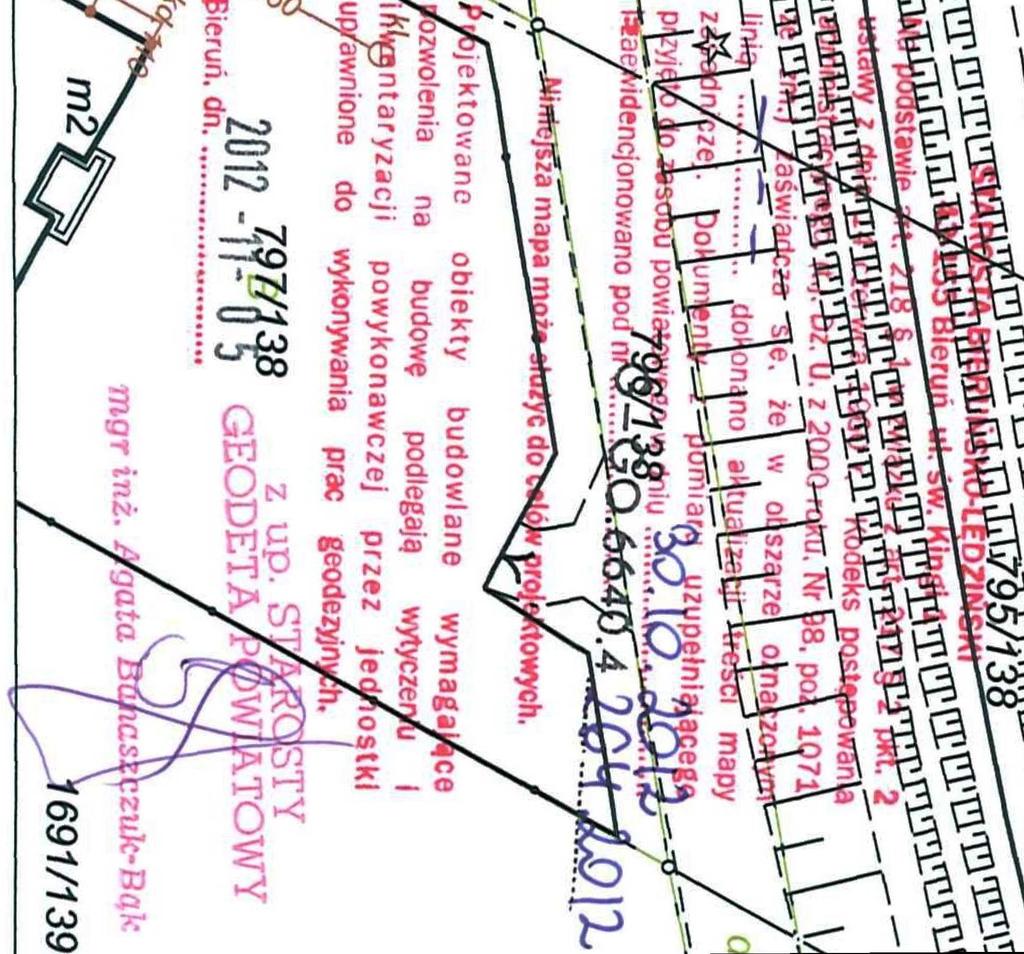 795/138
STAROSTA BIERUŃSKO-LĘDZIŃSKI
Bieruń ul. św. Kingi 1
Na podstawie art. 218 § 1 w związku z art. 217 § 2 pkt. 2
ustawy z dnia 14 czerwca 1960 r. Kodeks postępowania
administracyjnego (tj. Dz. U. z 2000 roku, Nr 98, poz. 1071
ze zm.) zaświadcza się, że w obszarze oznaczonym
linią .......... dokonano aktualizacji treści mapy
zasadniczej. Dokumenty z pomiaru uzupełniającego
przyjęto do zasobu powiatowego w dniu 30 10 2012
i zaewidencjonowano pod nr GO.6640.4 264 2012
796/138
Niniejsza mapa może służyć do celów projektowych.
Projektowane obiekty budowlane wymagające
pozwolenia na budowę podlegają wytyczeniu i
inwentaryzacji powykonawczej przez jednostki
uprawnione do wykonywania prac geodezyjnych.
797/138
Bieruń, dn. 2012 -11- 05
z up. STAROSTY
GEODETA POWIATOWY
mgr inż. Agata Banaszczuk-Bąk
m2
1691/139